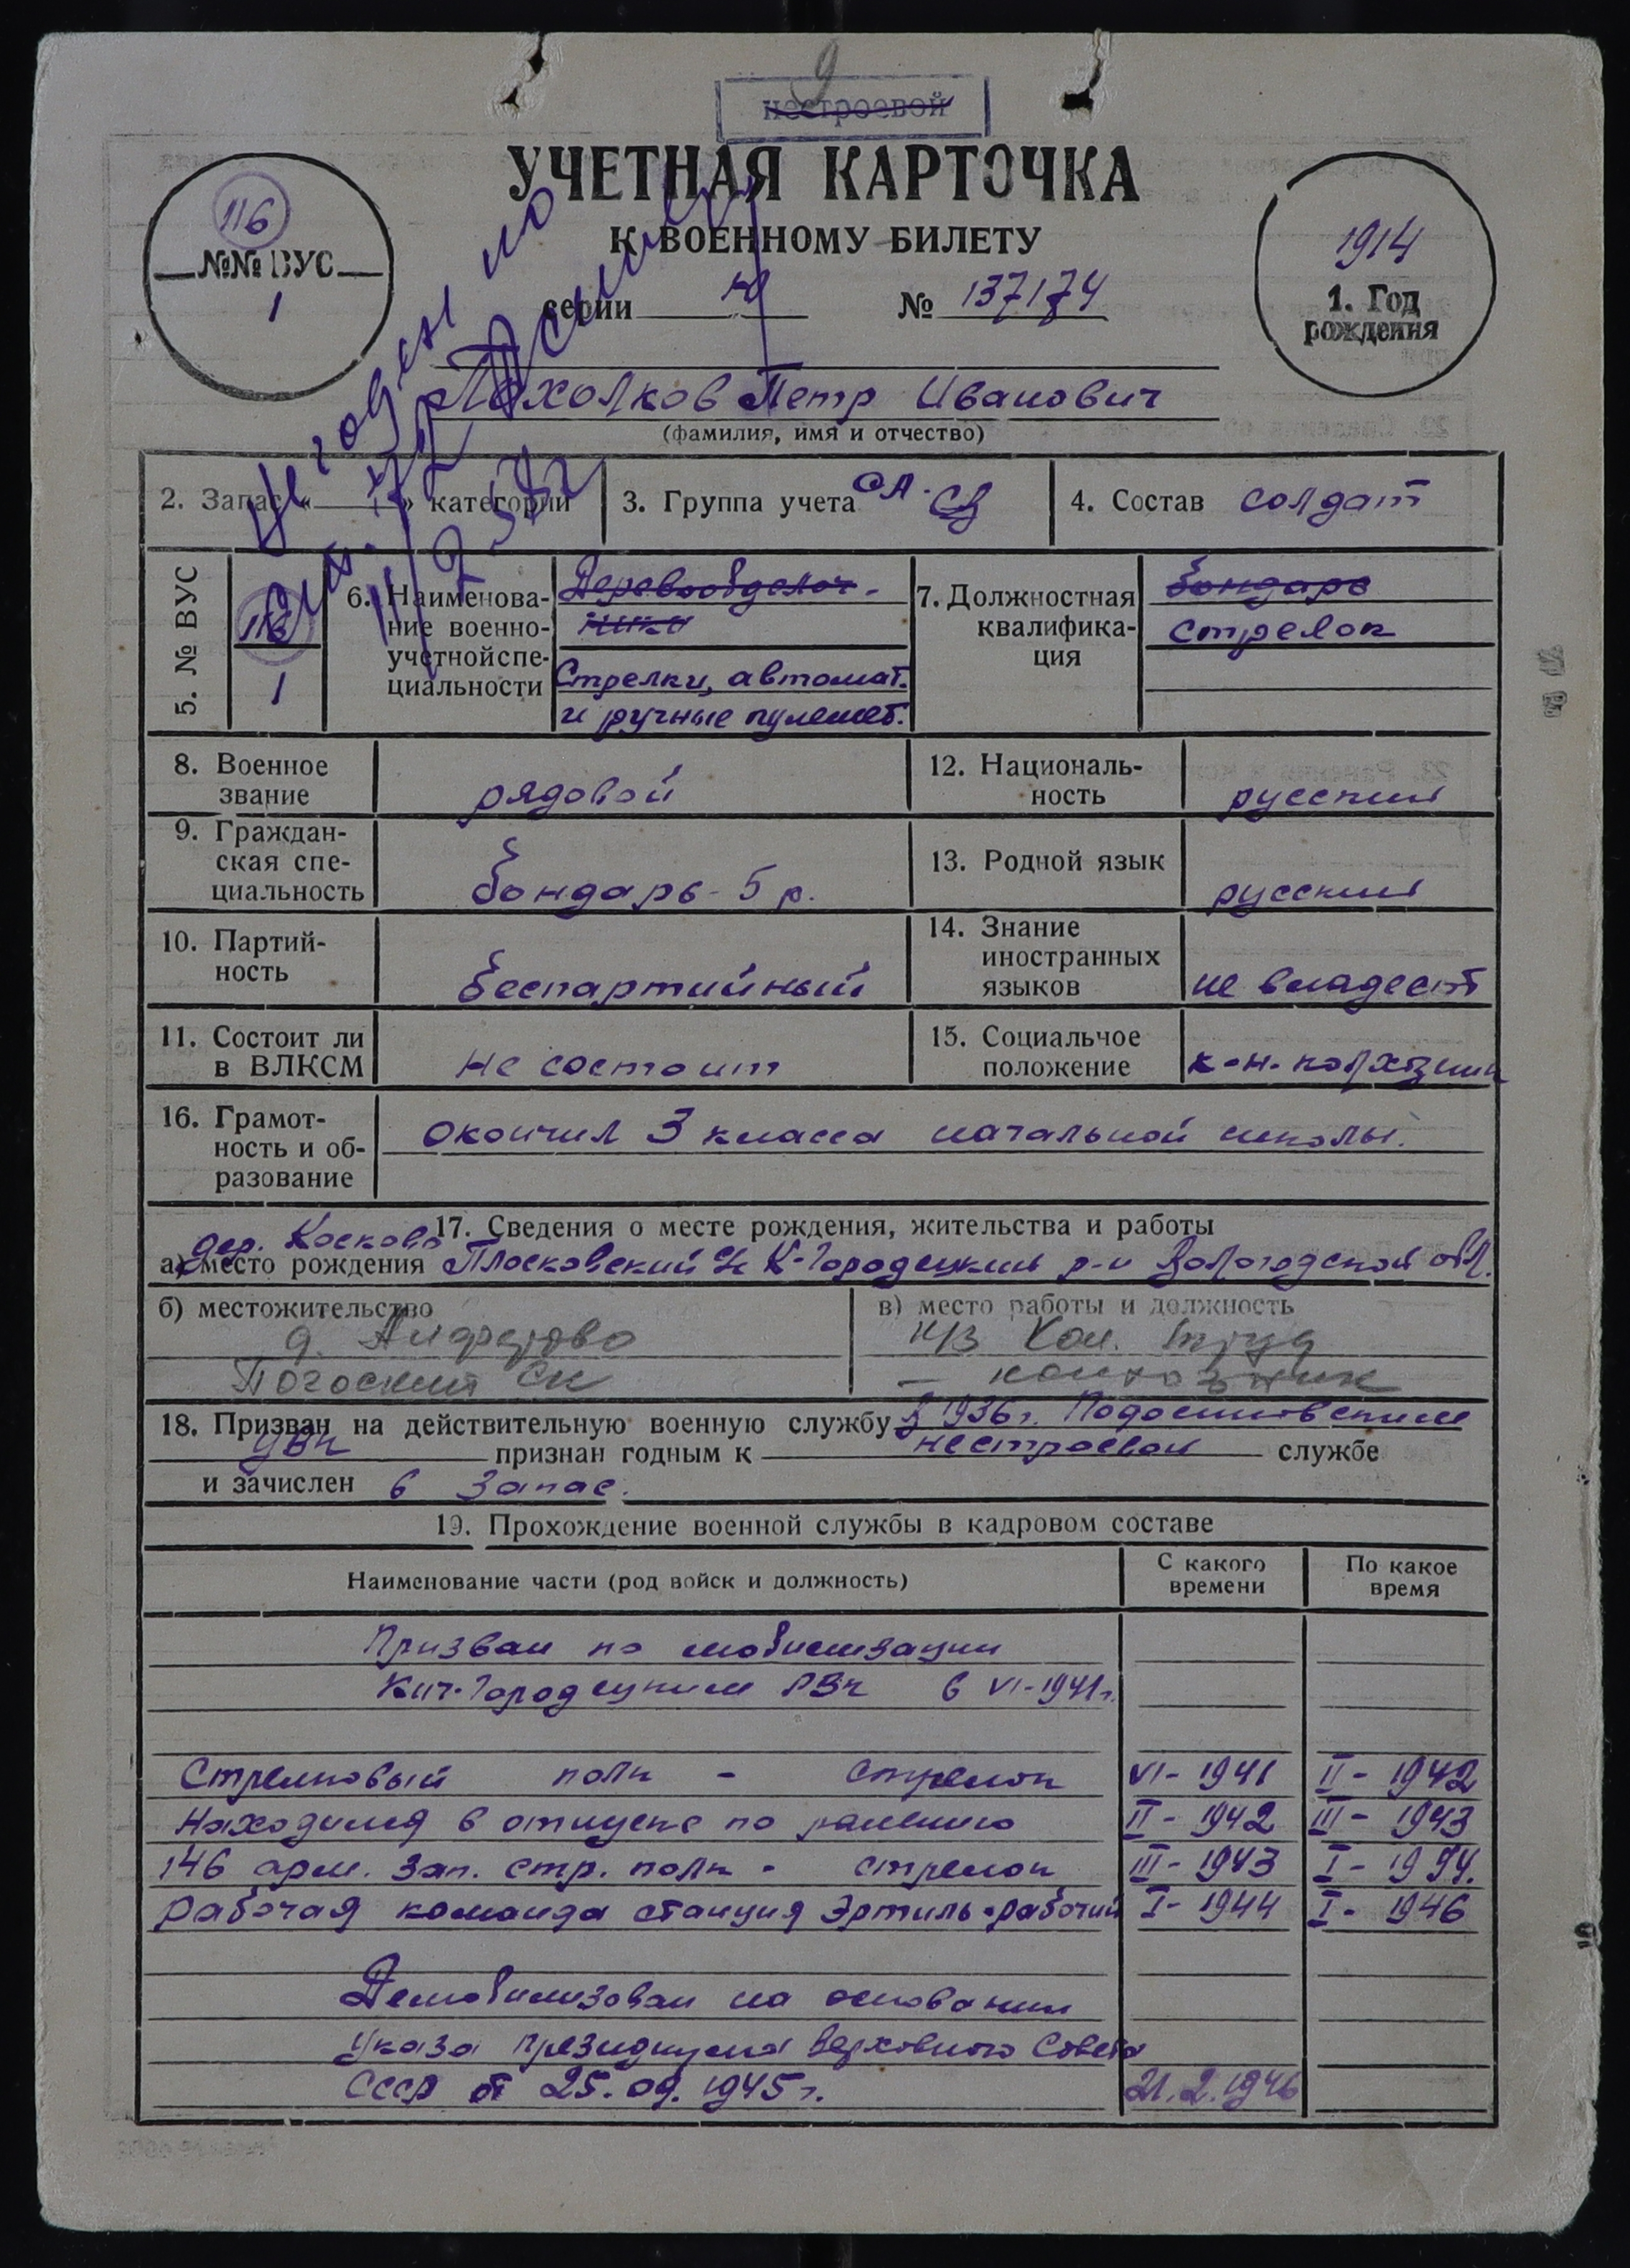 9
нестроевой
УЧЕТНАЯ КАРТОЧКА
К ВОЕННОМУ БИЛЕТУ
116
№№ ВУС
1
серии № 137174
1914
1. Год
рождения
Пахолков Петр Иванович
(фамилия, имя и отчество)
Не годен по
2. Запас « » категории
3. Группа учета СА
4. Состав солдат
5. № ВУС
116
1
6. Наименова-
ние военно-
учетной спе-
циальности
Деревообделоч-
ники
Стрелки, автомат.
и ручные пулемет.
7. Должностная
квалифика-
ция
бондарь
стрелок
8. Военное
звание
рядовой
12. Националь-
ность
русский
9. Граждан-
ская спе-
циальность
бондарь - 5 р.
13. Родной язык
русский
10. Партий-
ность
беспартийный
14. Знание
иностранных
языков
не владеет
11. Состоит ли
в ВЛКСМ
не состоит
15. Социальное
положение
к-н. колхозник
16. Грамот-
ность и об-
разование
окончил 3 класса начальной школы.
17. Сведения о месте рождения, жительства и работы
дер. Косково
а) место рождения Плосковский с/с К-Городецкий р-н Вологодской обл.
б) местожительство
д.
Погоский СК
в) место работы и должность
к/з Кол. труд
- колхозник
18. Призван на действительную военную службу в 1936г. Подосиновским
РВК признан годным к нестроевой службе
и зачислен в запас.
19. Прохождение военной службы в кадровом составе
Наименование части (род войск и должность)
С какого
времени
По какое
время
Призван по мобилизации
Кич-Городецким РВК в VI-1941г.
Стрелковый полк - стрелок VI-1941 II-1942
Находился в отпуске по ранению II-1942 III-1943
146 арм. зап. стр. полк - стрелок III-1943 I-1944.
Рабочая команда станция Эртиль - рабочий I-1944 I-1946
Демобилизован на основании
Указа Президиума Верховного Совета
СССР от 25.09.1945г. 21.2.1946